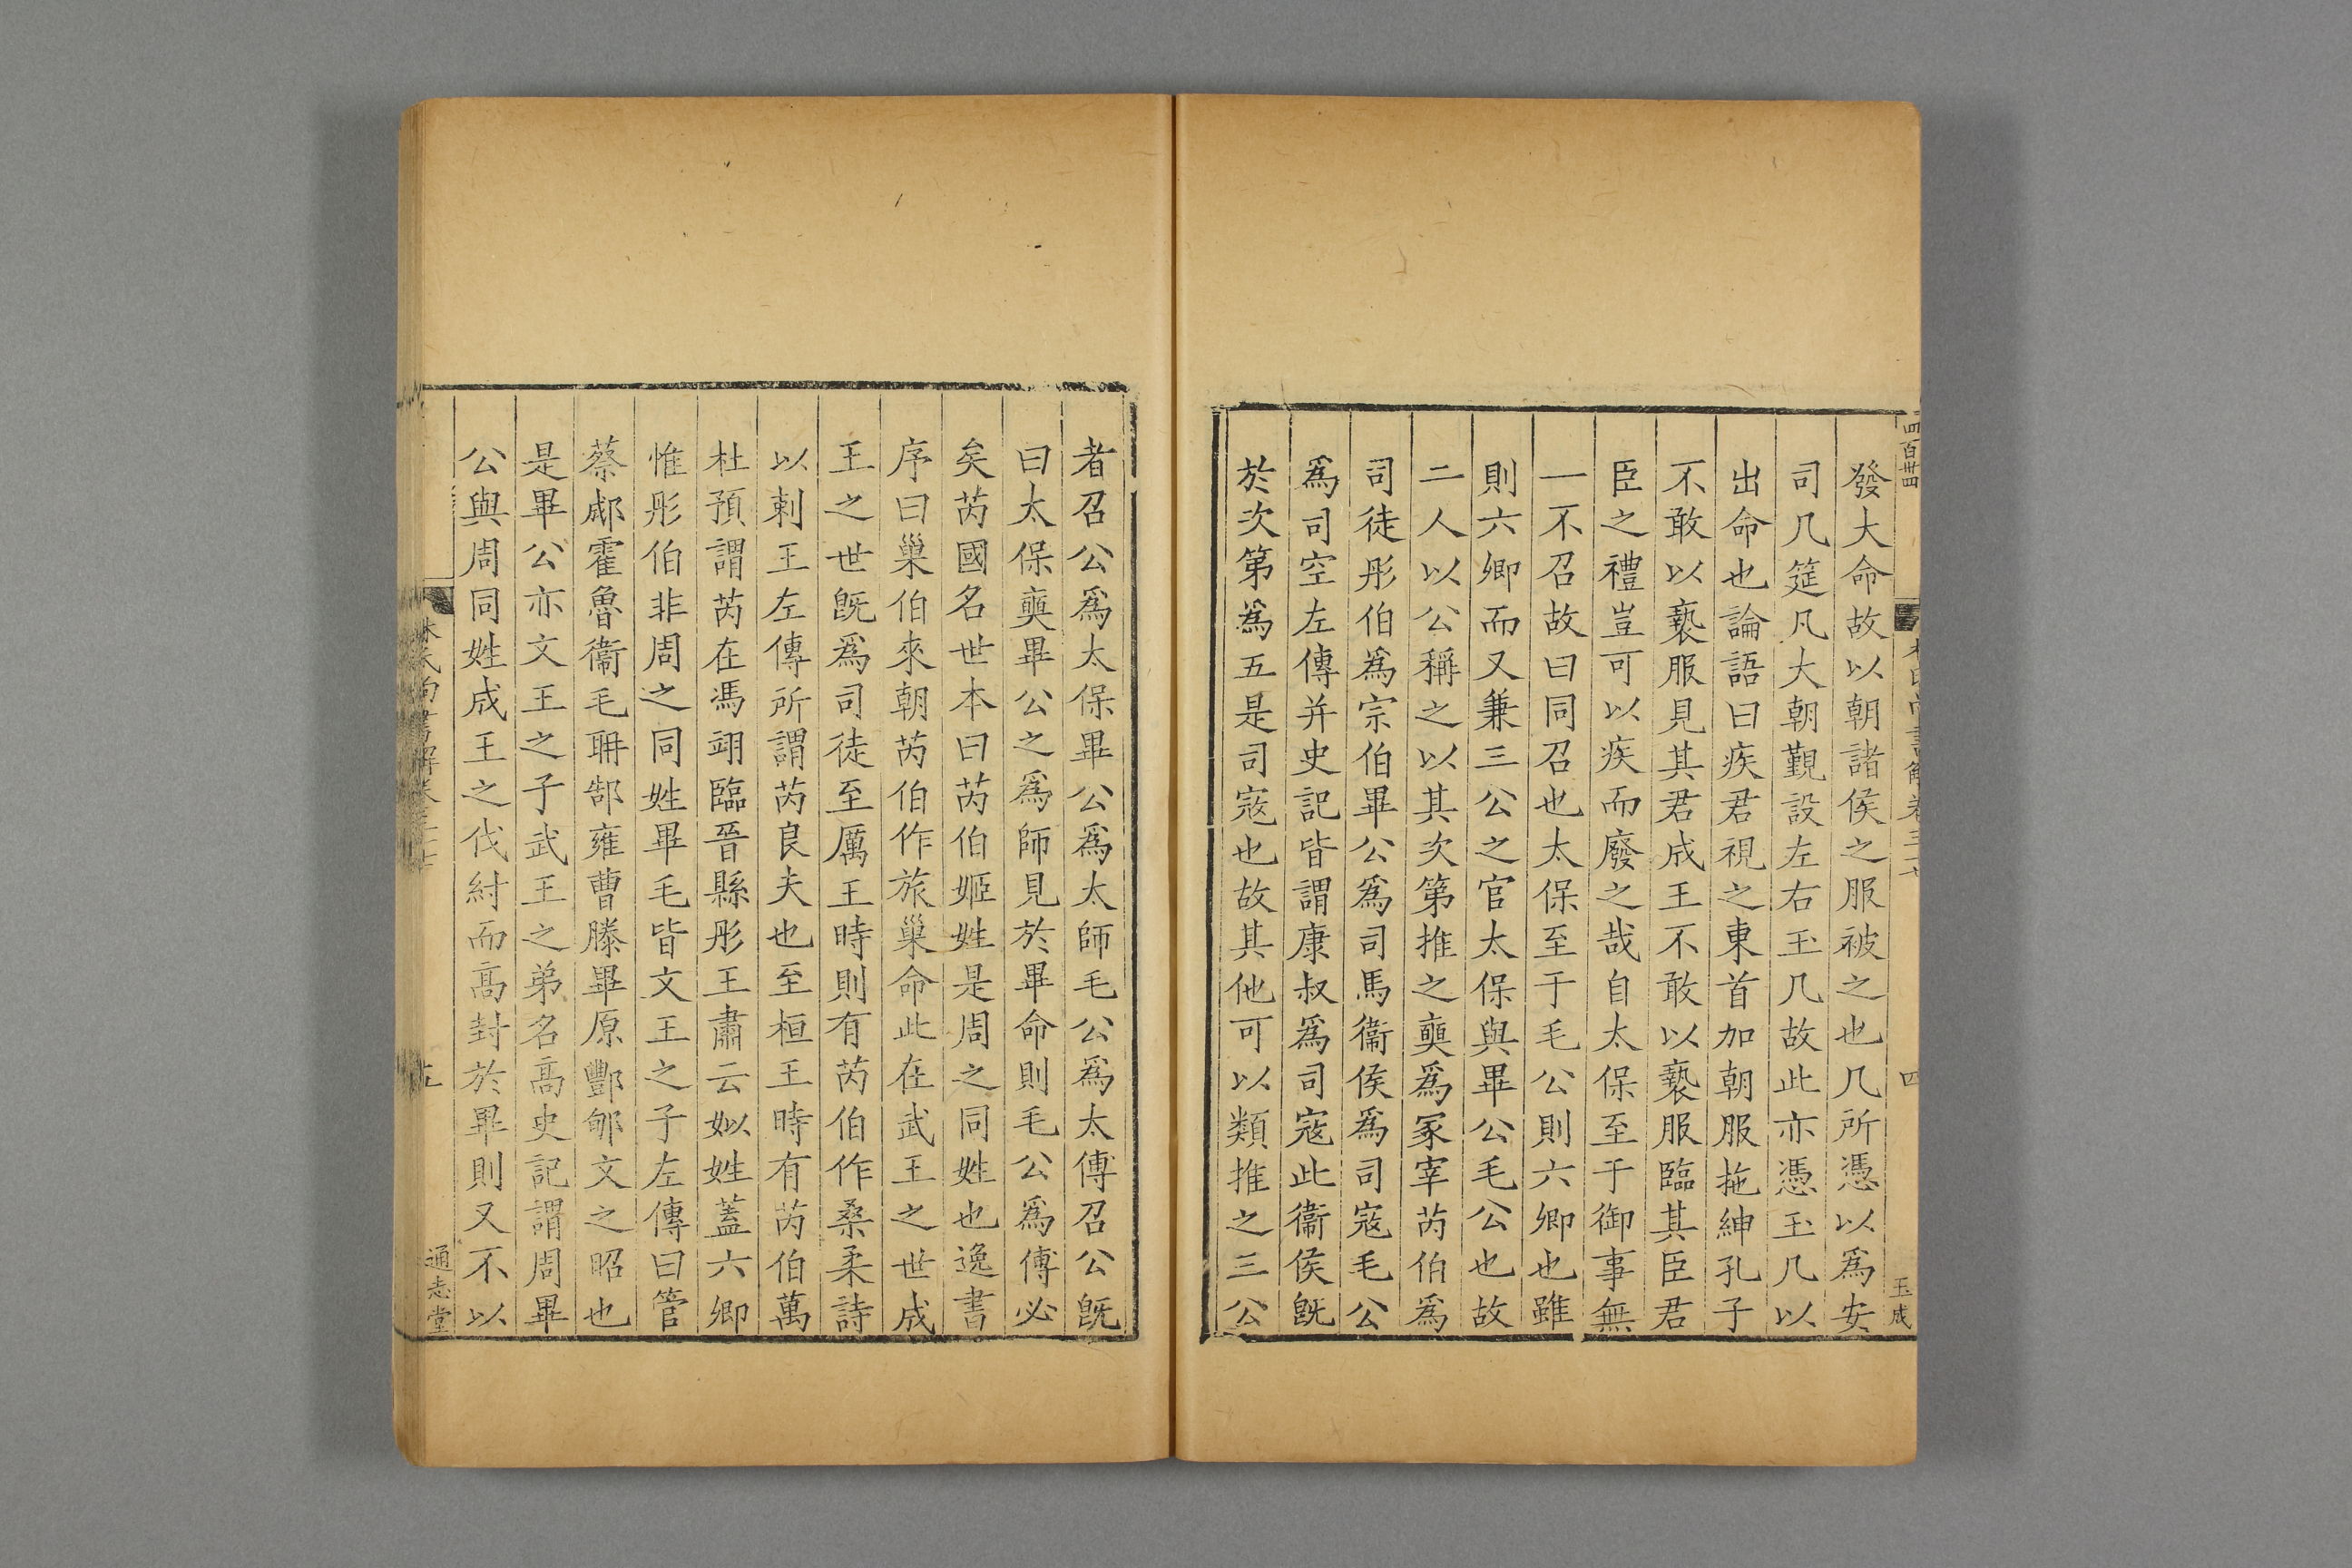 四百卌四
發大命故以朝諸侯之服被之也几所憑以爲安
司几筵凡大朝覲設左右玉几故此亦憑玉几以
出命也論語曰疾君視之東首加朝服拖紳孔子
不敢以褻服見其君成王不敢以褻服臨其臣君
臣之禮豈可以疾而廢之哉自太保至于御事無
一不召故曰同召也太保至于毛公則六卿也雖
則六卿而又兼三公之官太保與畢公毛公也故
二人以公稱之以其次第推之奭爲冢宰芮伯爲
司徒彤伯爲宗伯畢公爲司馬衞侯爲司寇毛公
爲司空左傳并史記皆謂康叔爲司寇此衞侯旣
於次第爲五是司寇也故其他可以類推之三公
四
玉成
者召公爲太保畢公爲太師毛公爲太傅召公旣
曰太保奭畢公之爲師見於畢命則毛公爲傅必
矣芮國名世本曰芮伯姬姓是周之同姓也逸書
序曰巢伯來朝芮伯作旅巢命此在武王之世成
王之世旣爲司徒至厲王時則有芮伯作桑柔詩
以刺王左傳所謂芮良夫也至桓王時有芮伯萬
杜預謂芮在馮翊臨晉縣彤王肅云姒姓蓋六卿
惟彤伯非周之同姓畢毛皆文王之子左傳曰管
蔡郕霍魯衞毛聃郜雍曹滕畢原酆郇文之昭也
是畢公亦文王之子武王之弟名高史記謂周畢
公與周同姓成王之伐紂而高封於畢則又不以
林氏尚書解卷三十七
五
通志堂